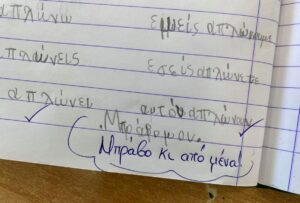 απλώνω εμείς απλώνουμε
απλώνεις εσείς απλώνετε
απλώνει αυτοί απλώνουν
Μπράβο μου.
Μπράβο κι από μένα!